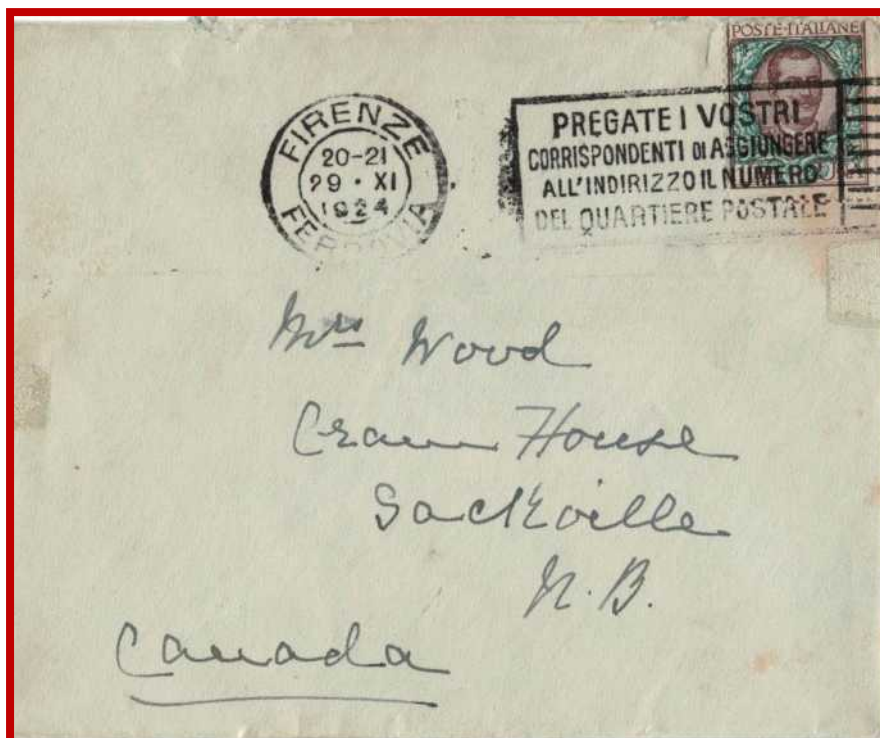 POSTE ITALIANE
FIRENZE
20-21
29 · XI
1924
FERROVIA
PREGATE I VOSTRI
CORRISPONDENTI DI AGGIUNGERE
ALL'INDIRIZZO IL NUMERO
DEL QUARTIERE POSTALE
Mrs Wood
Crane House
Sackville
N. B.
Canada